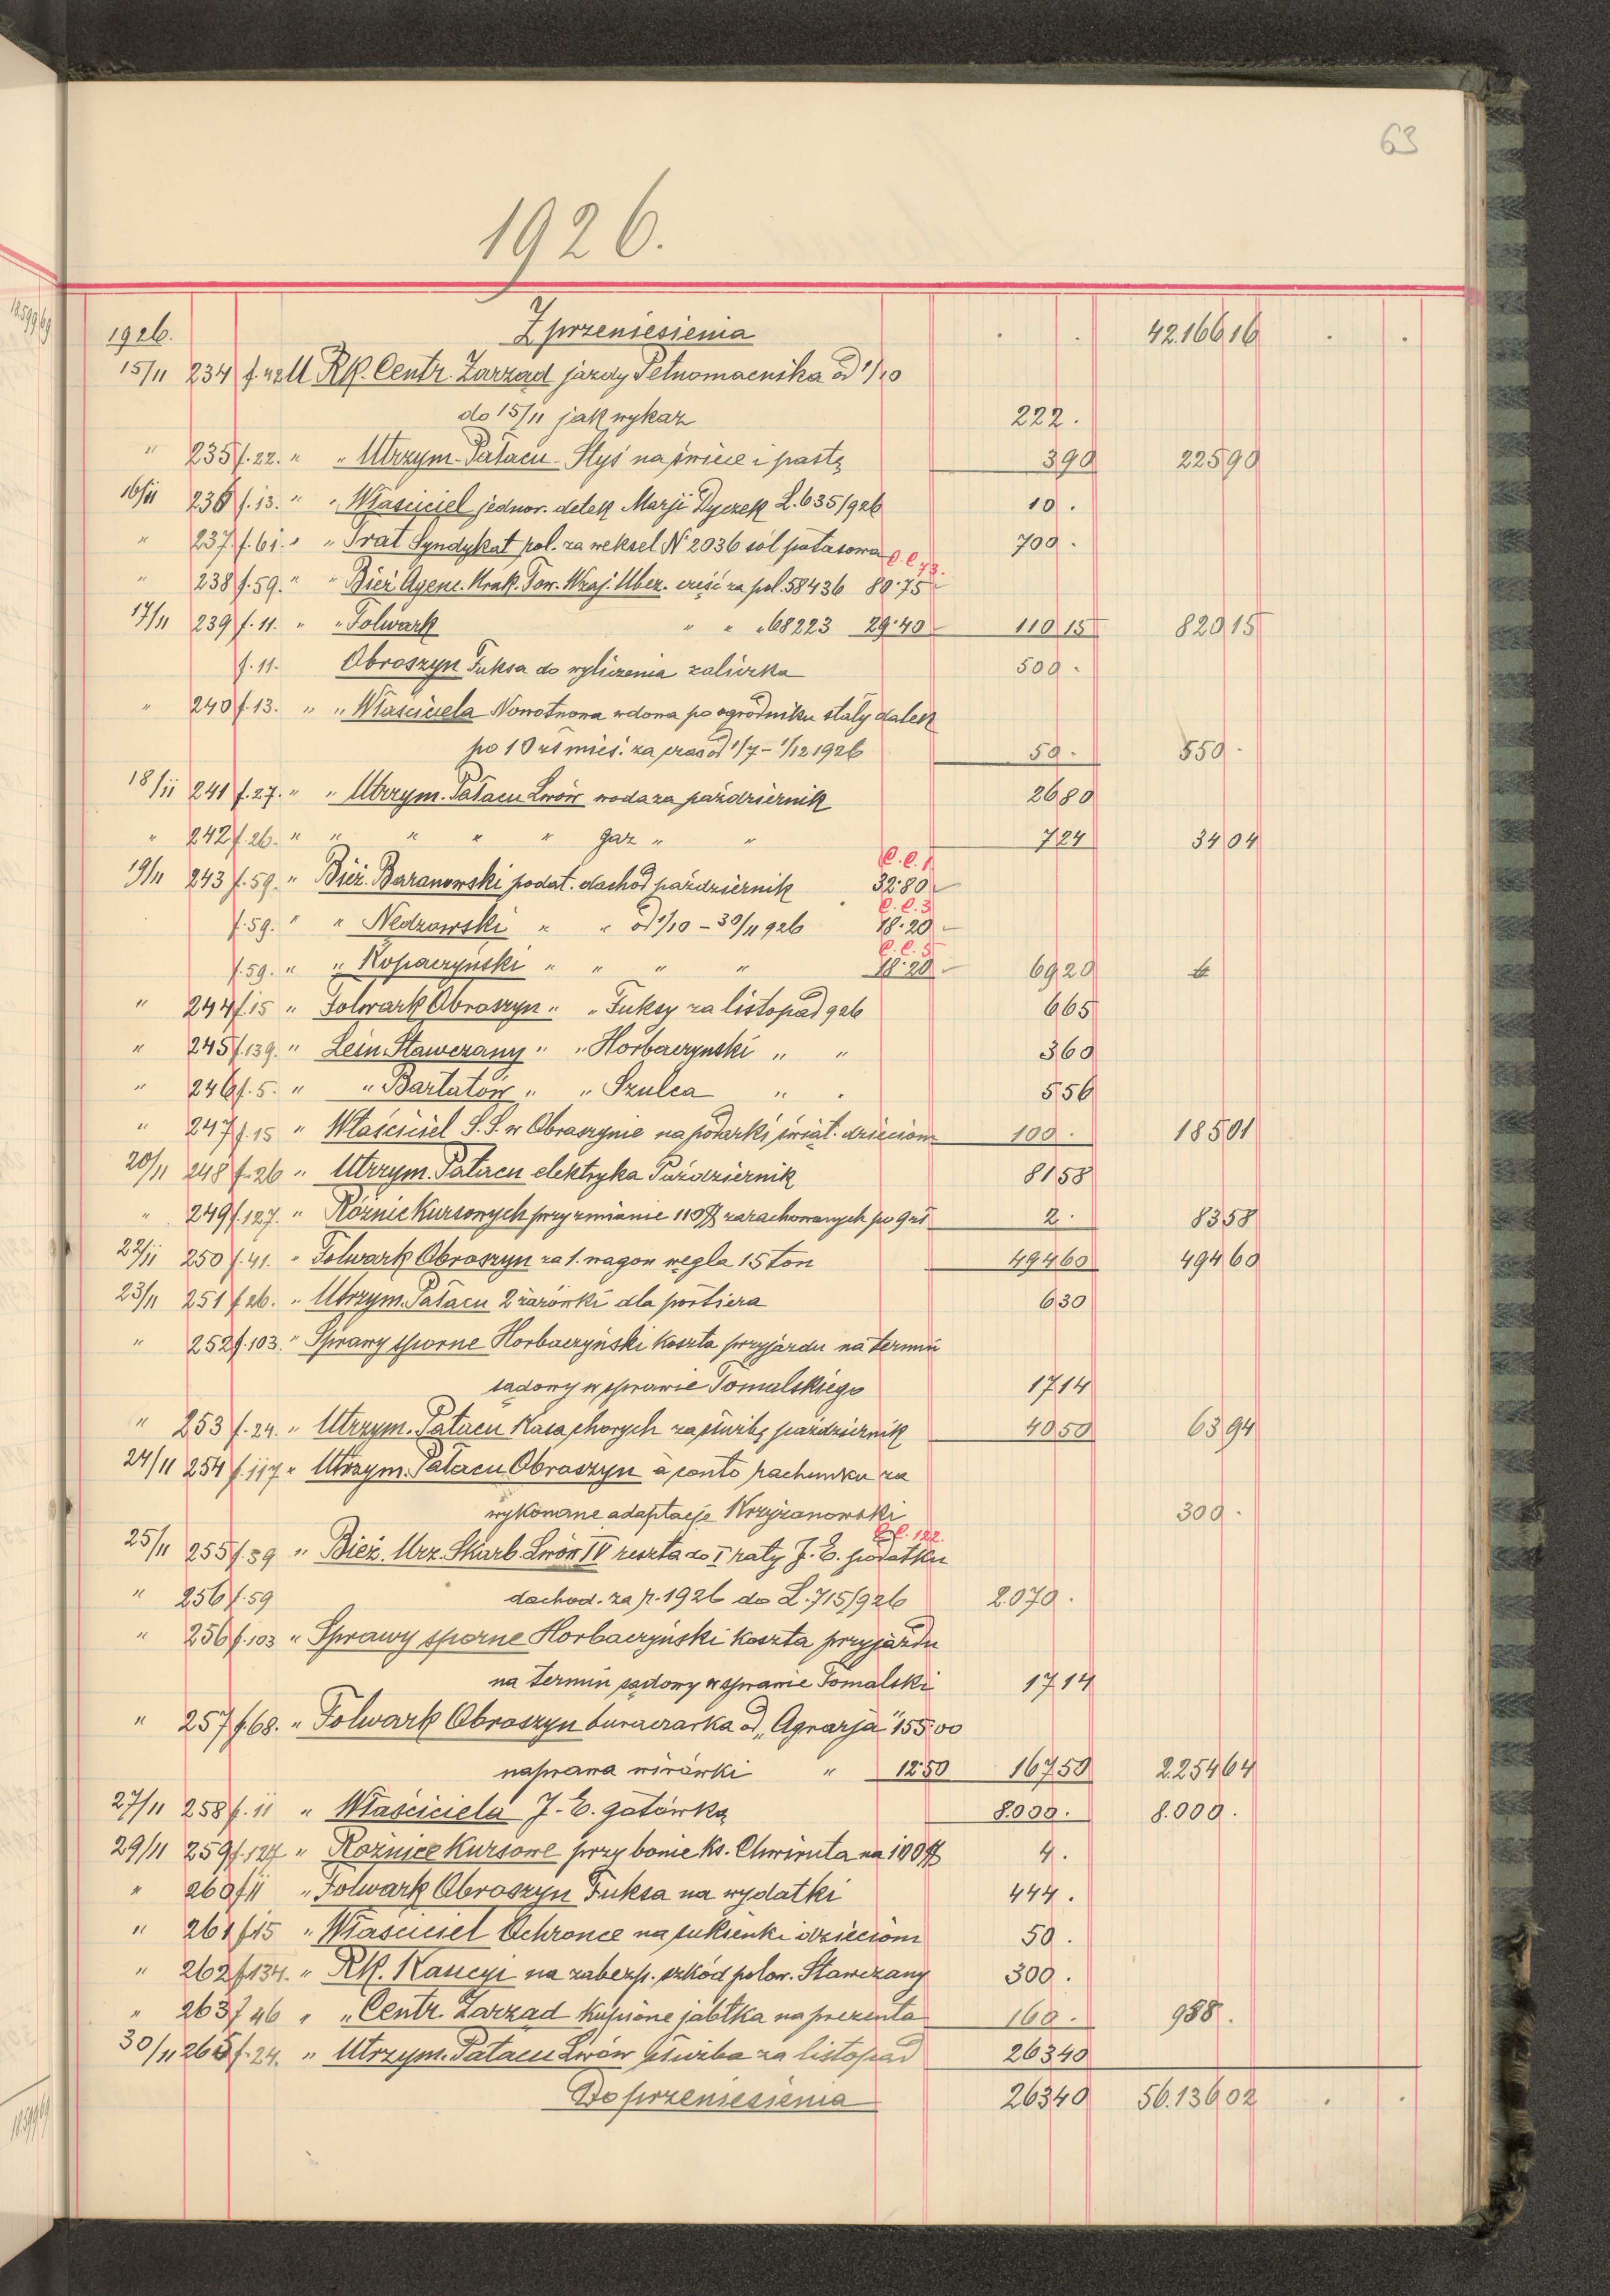 63
1926.
1926. Z przeniesienia . . 42.166 16 . .
15/11 234 f. Rk. Centr. Zarząd jazdy Pełnomocnika od 1/10
do 15/11 jak wykaz 222 .
" 235 f. 22. " " Utrzym. Pałacu - Styś na świece i pastę 3 90 225 90
16/11 236 f. 13. " " Właściciel jednor. datek Marji Dyczek L. 635/926 10 .
" 237 f. 61. " " Trat Syndykat rol. za weksel № 2036 sól potasowa 700 .
C. C. 73.
" 238 f. 59. " " Bież. Agenc. Krak. Tow. Wzaj. Ubez. część za pol. 58436 80.75
17/11 239 f. 11. " " Folwark " " " 68223 29.40 110 15 820 15
f. 11. Obroszyn Fuksa do wyliczenia zaliczka 500 .
" 240 f. 13. " " Właściciela Nowotnowa wdowa po ogrodniku stały datek
po 10 zł mies. za czas od 1/7 - 1/12 1926 50 . 550 .
18/11 241 f. 27. " " Utrzym. Pałacu Lwów woda za październik 26 80
" 242 f. 26. " " " " " gaz " " 7 24 34 04
C. C. 1
19/11 243 f. 59. " Bież. Baranowski podat. dochod październik 32.80
C. C. 3
f. 59. " " Nedzowski " " od 1/10 - 30/11 926 18.20
C. C. 5
f. 59. " " Kopaczyński " " " " 18.20 69 20
" 244 f. 15 " Folwark Obroszyn " " Fuksy za listopad 926 6 65
" 245 f. 139. " Leśn. Stawczany " " Horbaczynski " " 3 60
" 246 f. 5. " " Bartatów " " Szulca " " 5 56
" 247 f. 15 " Właściciel S. S. w Obroszynie na podarki świąt. dzieciom 100 . 185 01
20/11 248 f. 26 " Utrzym. Pałacu elektryka Październik 81 58
" 249 f. 127. " Różnic Kursowych przy zmianie 110 $ zarachowanych po 9 zł 2 . 83 58
22/11 250 f. 41. " Folwark Obroszyn za 1. wagon węgla 15 ton 494 60 494 60
23/11 251 f. 26. " Utrzym. Pałacu 2 żarówki dla portiera 6 30
" 252 f. 103. " Sprawy sporne Horbaczyński koszta przyjazdu na termin
sądowy w sprawie Tomalskiego 17 14
" 253 f. 24. " Utrzym. Pałacu Kasa chorych za służbę październik 40 50 63 94
24/11 254 f. 117 " Utrzym. Pałacu Obroszyn à conto rachunku za
wykonane adaptacje Krzyżanowski 300 .
C. C. 122.
25/11 255 f. 59 " Bież. Urz. Skarb. Lwów IV reszta do I raty J. E. podatku
" 256 f. 59 dochod. za r. 1926 do L. 715/926 2.070 .
" 256 f. 103 " Sprawy sporne Horbaczyński koszta przyjazdu
na termin sądowy w sprawie Tomalski 17 14
" 257 f. 68. " Folwark Obroszyn buraczarka od "Agrarja" 155.00
naprawa wirówki " 12.50 167 50 2.254 64
27/11 258 f. 11 " Właściciela J. E. gotówką 8.000 . 8.000 .
29/11 259 f. 127 " Różnice Kursowe przy bonie ks. Chwiruta na 100 $ 4 .
" 260 f. 11 " Folwark Obroszyn Fuksa na wydatki 444 .
" 261 f. 15 " Właściciel Ochronce na sukienki dzieciom 50 .
" 262 f. 134. " Rk. Kaucyi na zabezp. szkód polow. Stawczany 300 .
" 263 f. 46 " " Centr. Zarząd kupione jabłka na prezenta 160 . 988 .
30/11 265 f. 24. " Utrzym. Pałacu Lwów służba za listopad 263 40
Do przeniesienia 263 40 56.136 02 . .